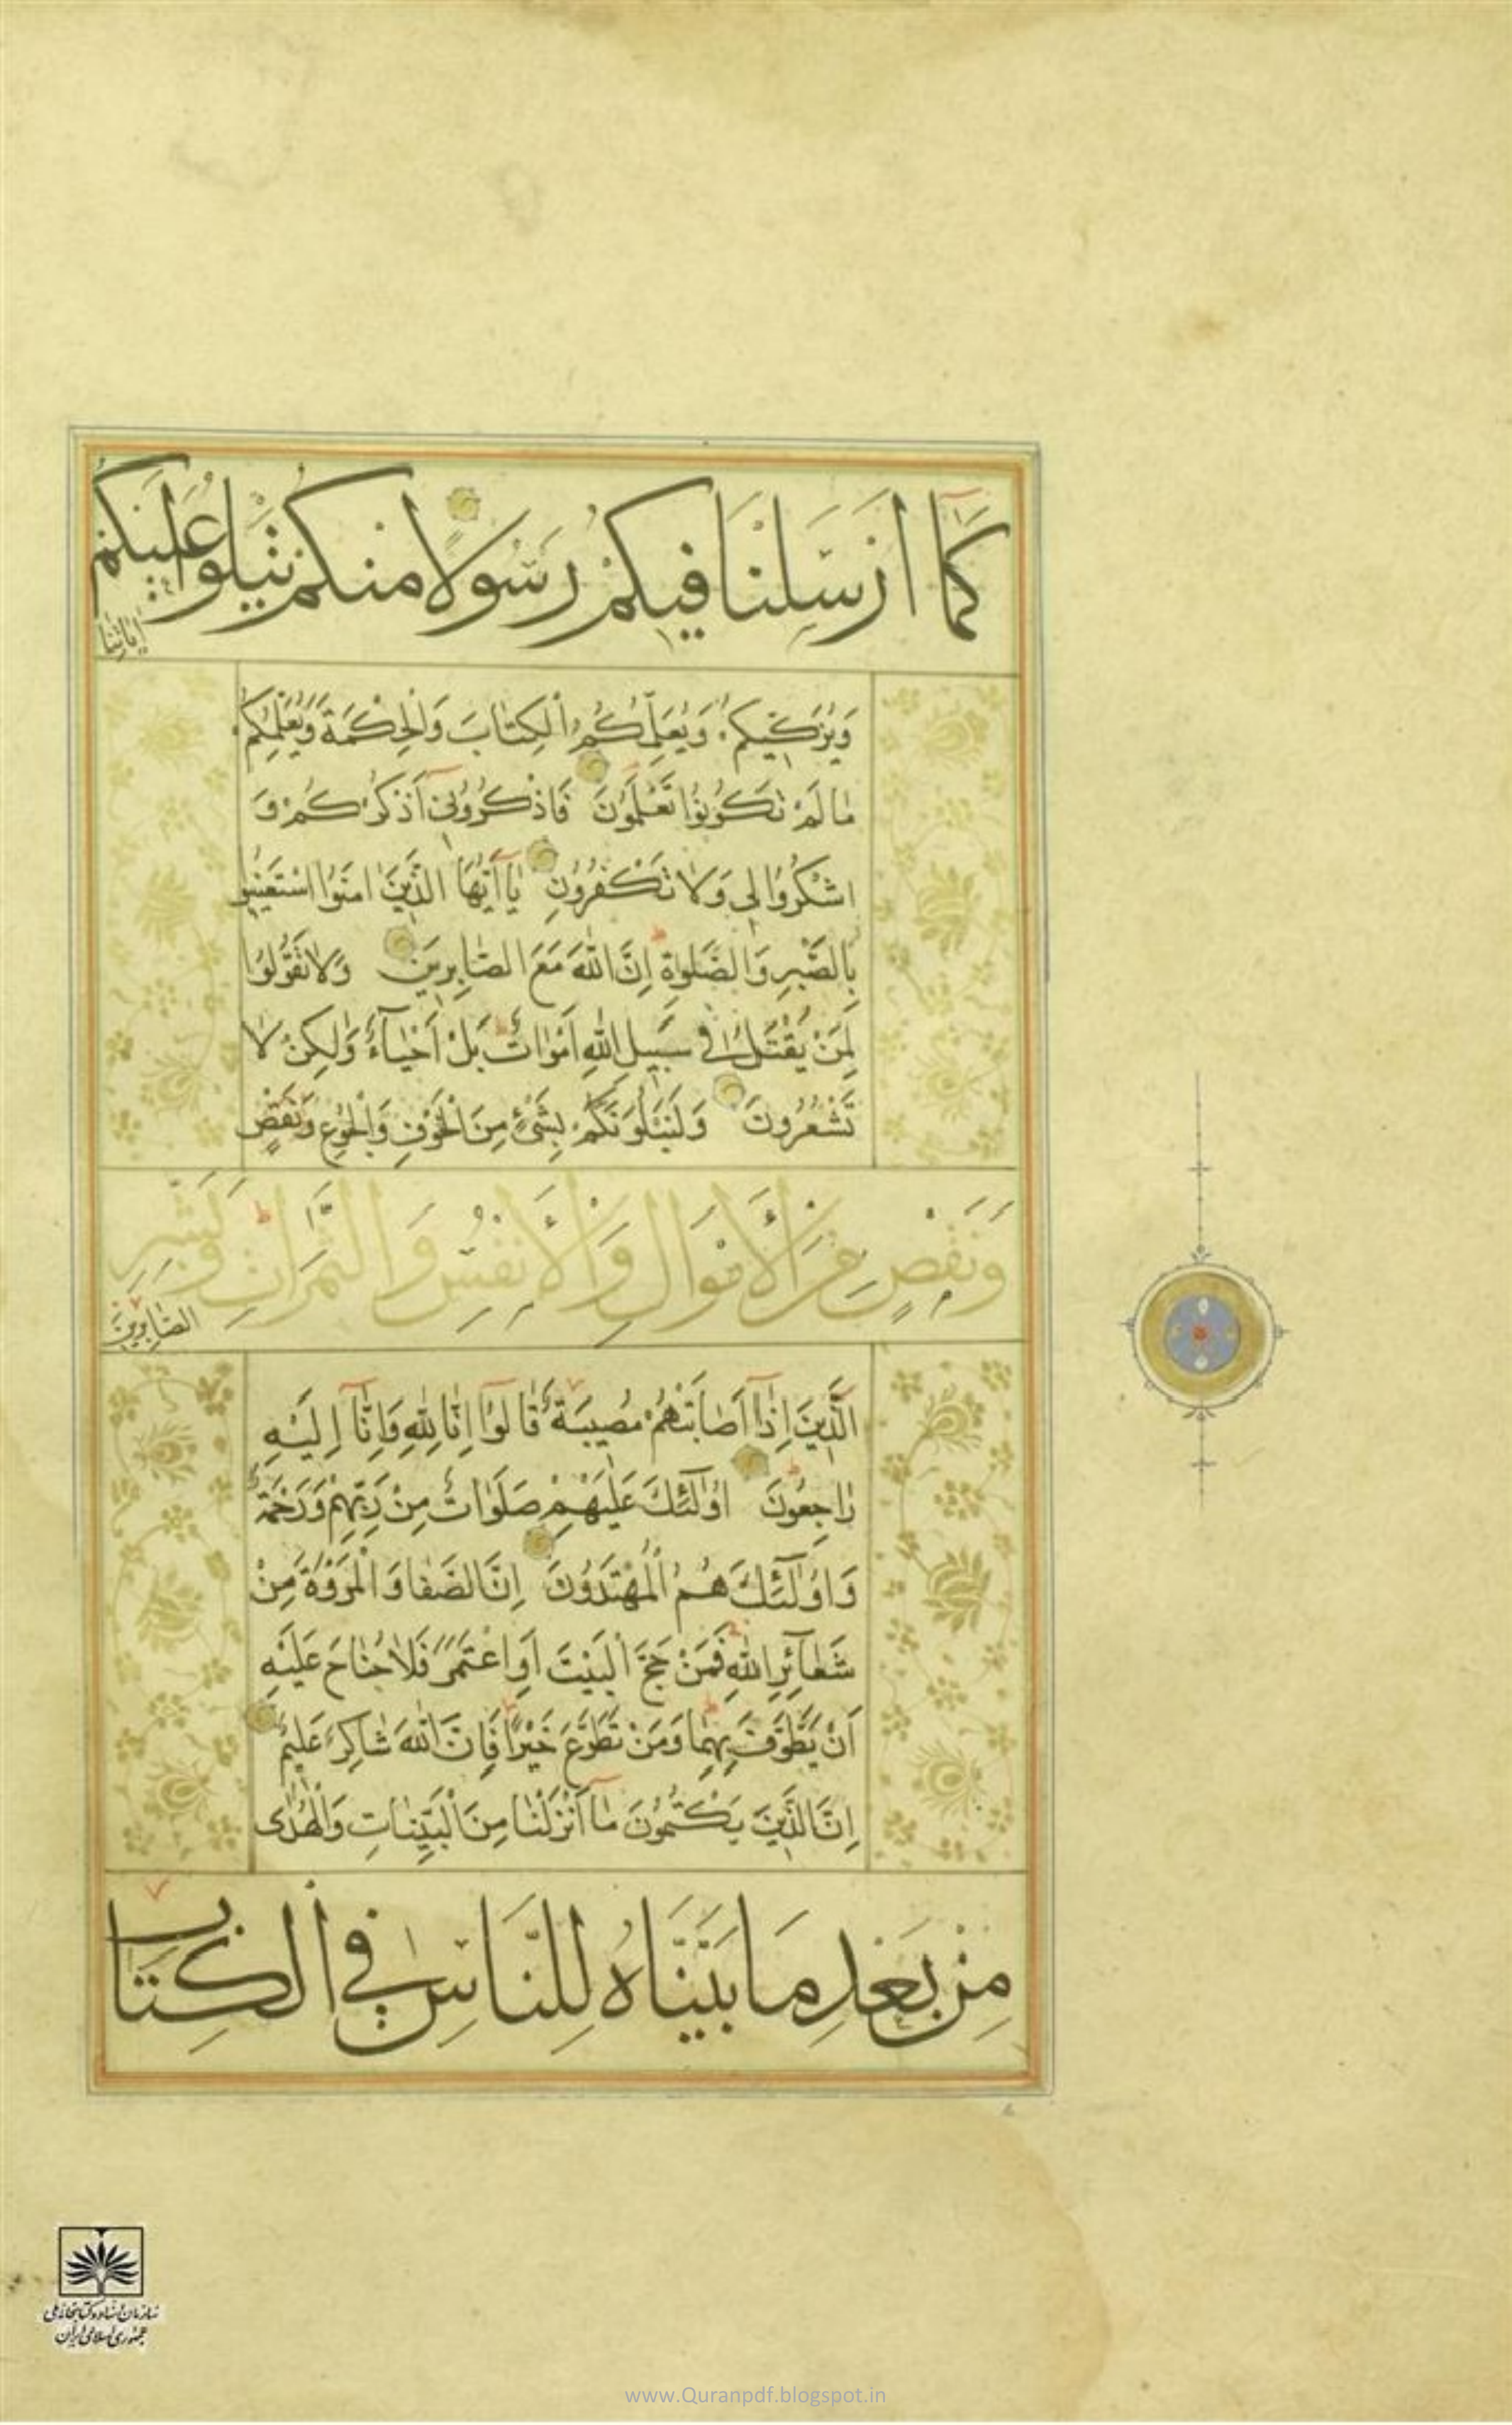 كَمَا اَرْسَلْنَا فِيكُمْ رَسُولًا مِنْكُمْ يَتْلُو عَلَيْكُمْ
اٰيَاتِنَا
وَيُزَكِّيكُمْ وَيُعَلِّمُكُمُ الْكِتَابَ وَالْحِكْمَةَ وَيُعَلِّمُكُمْ
مَا لَمْ تَكُونُوا تَعْلَمُونَ فَاذْكُرُونِي اَذْكُرْكُمْ وَ
اشْكُرُوا لِي وَلَا تَكْفُرُونِ يَا اَيُّهَا الَّذِينَ اٰمَنُوا اسْتَعِينُوا
بِالصَّبْرِ وَالصَّلٰوةِ اِنَّ اللّٰهَ مَعَ الصَّابِرِينَ وَلَا تَقُولُوا
لِمَنْ يُقْتَلُ فِي سَبِيلِ اللّٰهِ اَمْوَاتٌ بَلْ اَحْيَآءٌ وَلٰكِنْ لَا
تَشْعُرُونَ وَلَنَبْلُوَنَّكُمْ بِشَيْءٍ مِنَ الْخَوْفِ وَالْجُوعِ وَنَقْصٍ
وَنَقْصٍ مِنَ الْاَمْوَالِ وَالْاَنْفُسِ وَالثَّمَرَاتِ وَبَشِّرِ
الصَّابِرِينَ
الَّذِينَ اِذَآ اَصَابَتْهُمْ مُصِيبَةٌ قَالُوٓا اِنَّا لِلّٰهِ وَاِنَّآ اِلَيْهِ
رَاجِعُونَ اُولٰٓئِكَ عَلَيْهِمْ صَلَوَاتٌ مِنْ رَبِّهِمْ وَرَحْمَةٌ
وَاُولٰٓئِكَ هُمُ الْمُهْتَدُونَ اِنَّ الصَّفَا وَالْمَرْوَةَ مِنْ
شَعَآئِرِ اللّٰهِ فَمَنْ حَجَّ الْبَيْتَ اَوِ اعْتَمَرَ فَلَا جُنَاحَ عَلَيْهِ
اَنْ يَطَّوَّفَ بِهِمَا وَمَنْ تَطَوَّعَ خَيْرًا فَاِنَّ اللّٰهَ شَاكِرٌ عَلِيمٌ
اِنَّ الَّذِينَ يَكْتُمُونَ مَآ اَنْزَلْنَا مِنَ الْبَيِّنَاتِ وَالْهُدٰى
مِنْ بَعْدِ مَا بَيَّنَّاهُ لِلنَّاسِ فِي الْكِتَابِ
سازمان اسناد و کتابخانه ملی
جمهوری اسلامی ایران
www.Quranpdf.blogspot.in